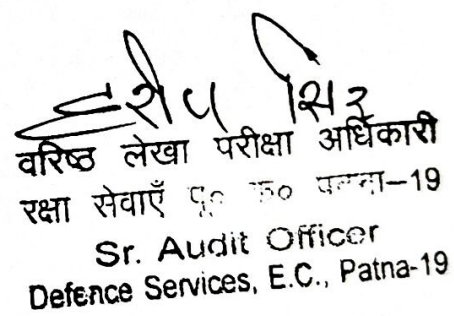 वरिष्ठ लेखा परीक्षा अधिकारी
रक्षा सेवाएँ पू० क० पटना–19
Sr. Audit Officer
Defence Services, E.C., Patna-19